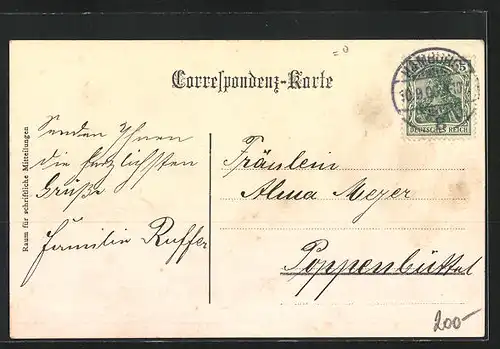 Correspondenz-Karte
HAMBURG
5
DEUTSCHES REICH
Raum für schriftliche Mitteilungen
Senden Ihnen
die herzlichsten
Grüße
Familie Ruffer
Fräulein
Alma Meyer
Poppenbüttel
200-